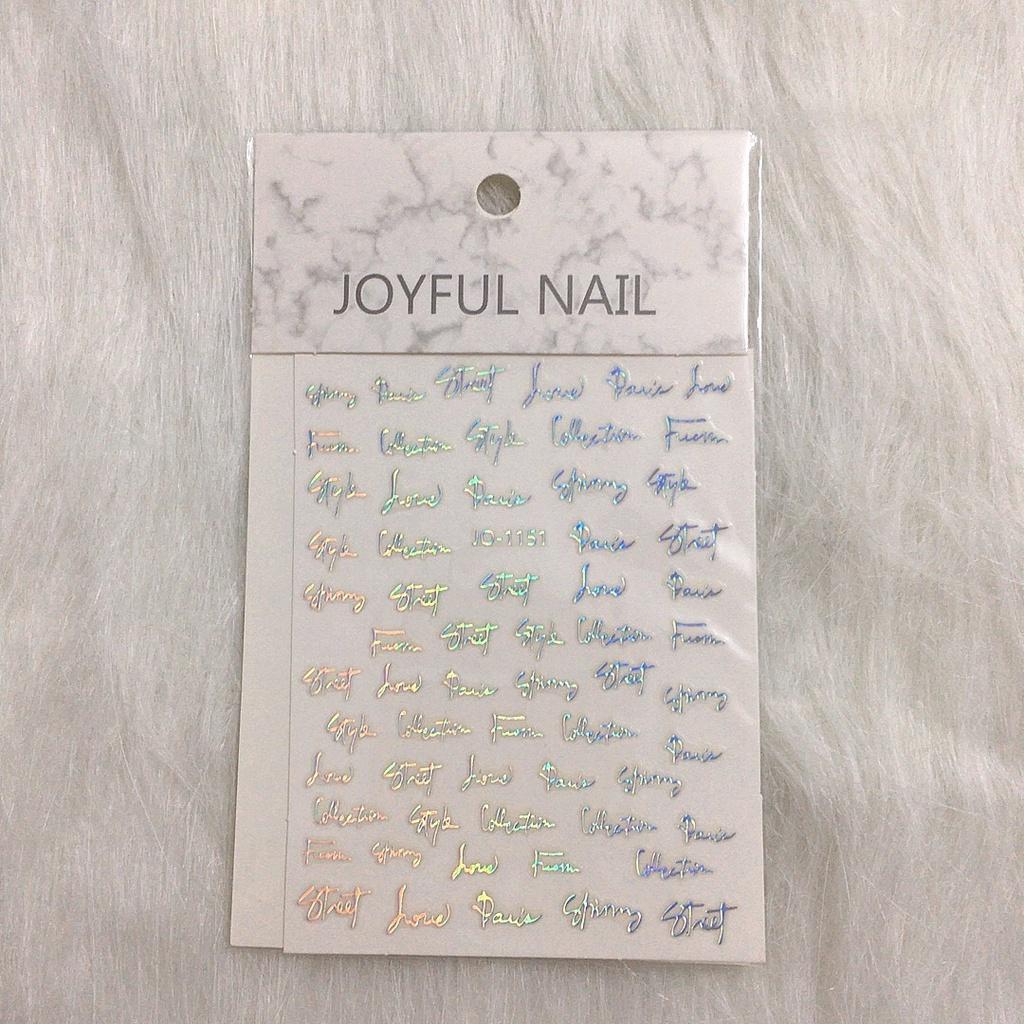 JOYFUL NAIL
Spinny Paris Street Love Paris Love
From Collection Style Collection From
Style Love Paris Spinny Style
Style Collection JO-1151 Paris Street
Spinny Street Street Love Paris
From Street Style Collection From
Street Love Paris Spinny Street Spinny
Style Collection From Collection
Paris
Love Street Love Paris Spinny
Collection Style Collection Collection Paris
From Spinny Love From Collection
Street Love Paris Spinny Street